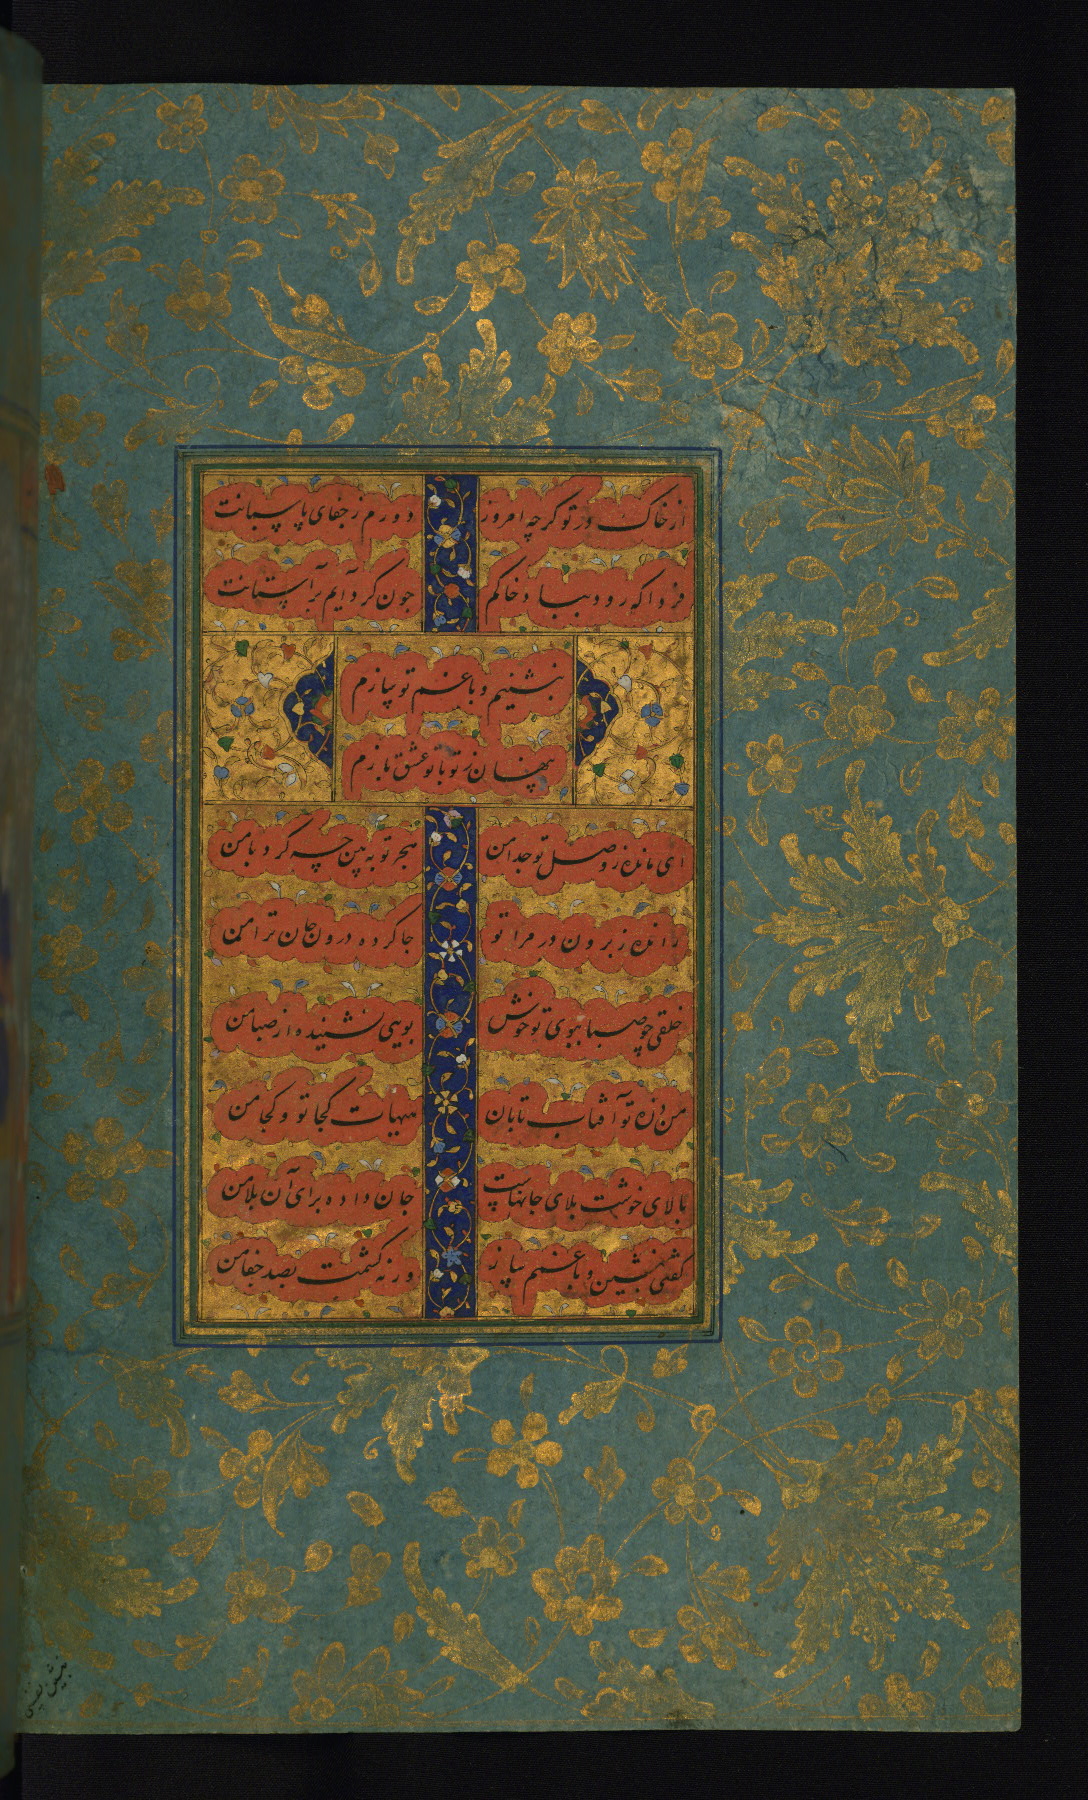 از خاک در تو گرچه امروز
دورم ز جفای پاسبانت
فردا که رود بباد خاکم
چون گرد آیم بر آستانت
بنشینم و با غم تو سازم
پنهان ز تو با تو عشق بازم
ای مانده ز وصل تو جدا من
هجر تو ببین چه کرد با من
رانده ز برون در مرا تو
جا کرده درون جان ترا من
خلقی چو صبا ببوی تو خوش
بویی نشنیده از صبا من
من ذره تو آفتاب تابان
هیهات کجا تو و کجا من
بالای خوشت بلای جانهاست
جان داده برای آن بلا من
گفتی بنشین و با غمم ساز
ورنه کشمت بصد جفا من
بنشین